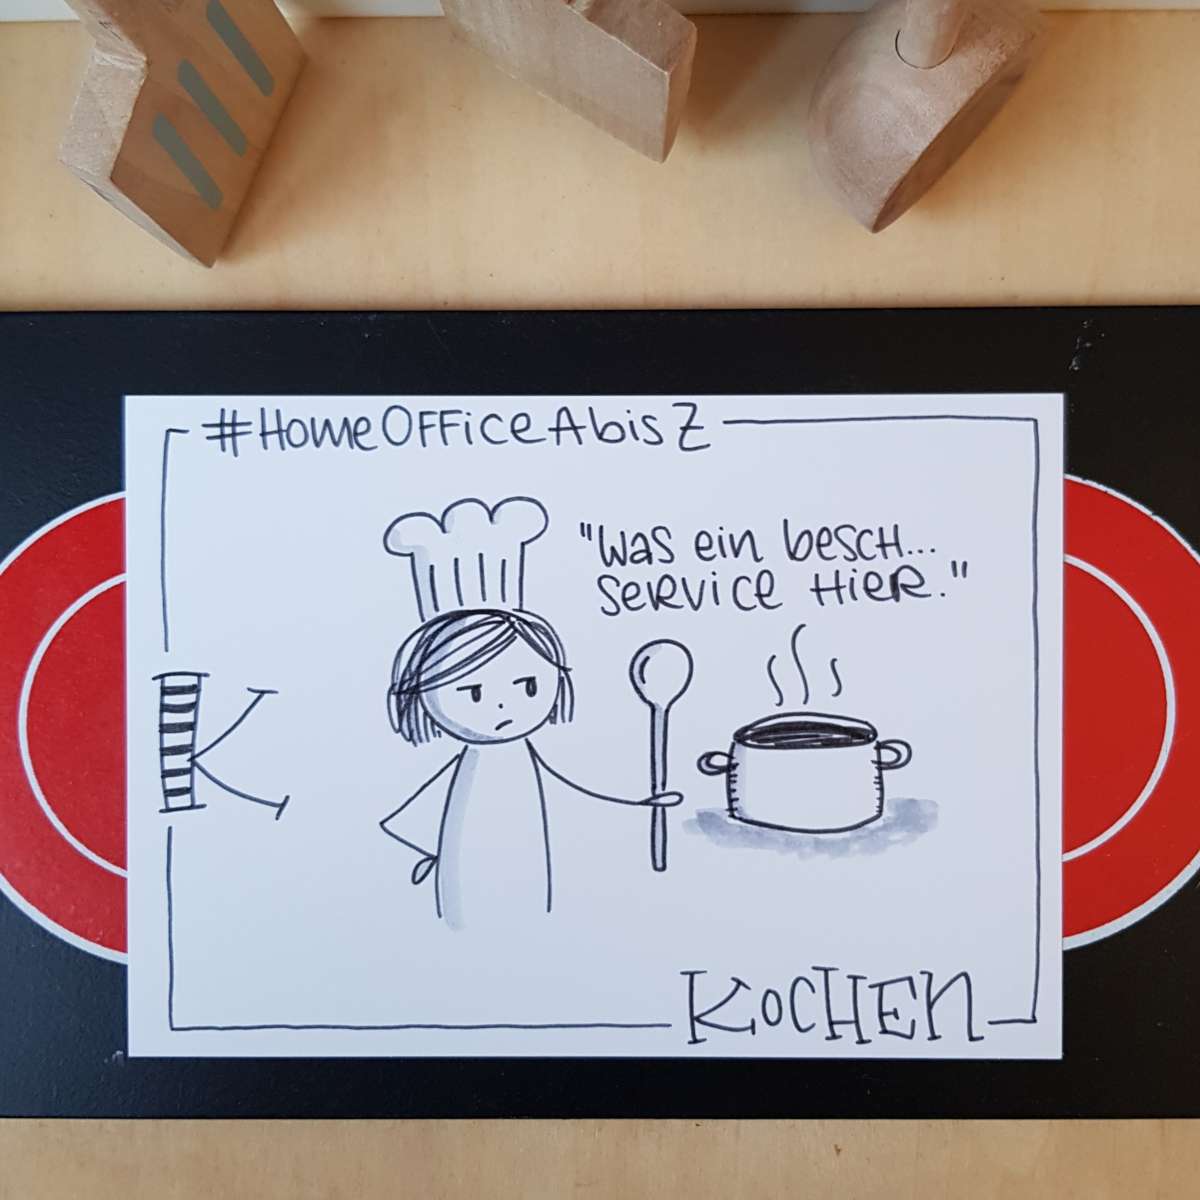 #HomeOfficeAbisZ
"Was ein besch...
Service hier."
K
Kochen